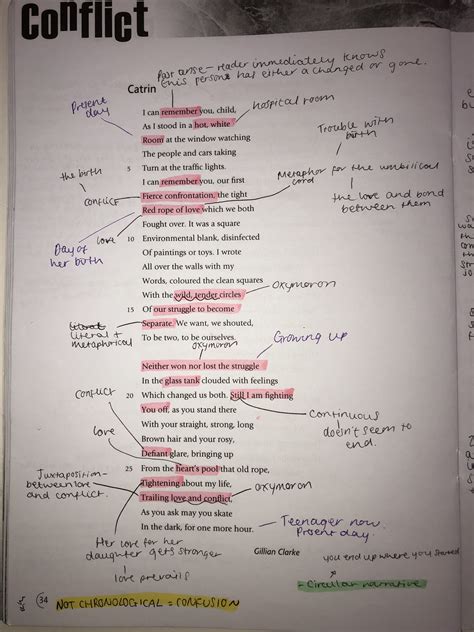 Conflict
Past tense – reader immediately knows
this person has either a changed or gone.
Catrin
I can remember you, child,
hospital room
Present
day
As I stood in a hot, white
Room at the window watching
Trouble with
birth
The people and cars taking
5 Turn at the traffic lights.
I can remember you, our first
Metaphor for the umbilical
cord
the birth
conflict
Fierce confrontation, the tight
the love and bond
between them
Red rope of love which we both
love
Day of
her birth
Fought over. It was a square
10 Environmental blank, disinfected
Of paintings or toys. I wrote
All over the walls with my
Words, coloured the clean squares
With the wild, tender circles
oxymoron
15 Of our struggle to become
literal +
metaphorical
Separate. We want, we shouted,
To be two, to be ourselves.
oxymoron
Growing up
Neither won nor lost the struggle
In the glass tank clouded with feelings
conflict
20 Which changed us both. Still I am fighting
You off, as you stand there
Continuous
doesn't seem to
end.
With your straight, strong, long
love
Brown hair and your rosy,
Defiant glare, bringing up
25 From the heart's pool that old rope,
Juxtaposition –
between love
and conflict.
Tightening about my life,
Trailing love and conflict,
oxymoron
As you ask may you skate
In the dark, for one more hour.
Teenager now
Present day.
Her love for her
daughter gets stronger
love prevails
Gillian Clarke
you end up where you started
- Circular narrative
34
NOT CHRONOLOGICAL = CONFUSION